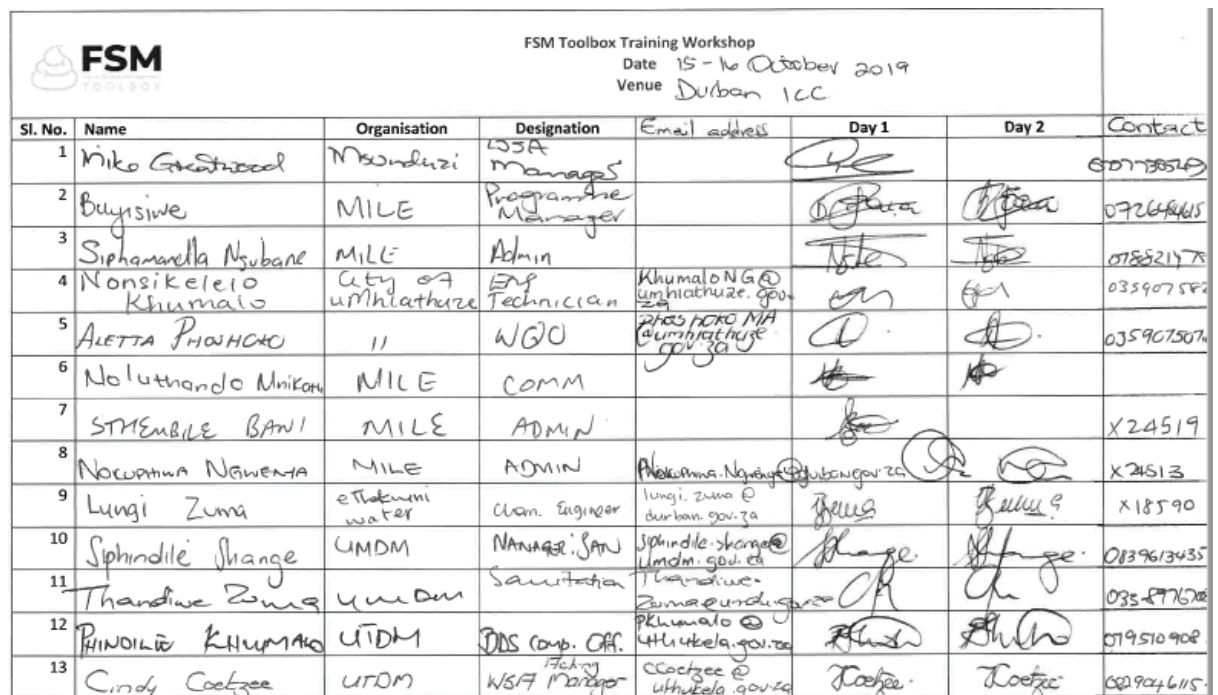 FSM
TOOLBOX
FSM Toolbox Training Workshop
Date 15-16 October 2019
Venue Durban ICC
Sl. No. Name Organisation Designation Email address Day 1 Day 2 Contact
1 Mike Greatwood Msunduzi WSA Manager
2 Buyisiwe MILE Programme Manager
3 Siphamandla Ngubane MILE Admin
4 Nonsikelelo Khumalo City of uMhlathuze Technician KhumaloNG@umhlathuze.gov.za
5 ALETTA PHOSHOKO " WQO
6 Noluthando MILE COMM
7 STHEMBILE BANI MILE ADMIN X24519
8 NOKUPHIWA NGWENYA MILE ADMIN X24513
9 Lungi Zuma eThekwini water Engineer lungi.zuma@durban.gov.za Zuma Zuma X18590
10 Siphindile Shange UMDM MANAGER: SAN Siphindile.shange@umdm.gov.za Shange. Shange. 0839613435
11 Thandiwe Zuma UMDM Sanitation
12 PHINDILE KHUMALO UTDM Comp. Off. PKhumalo@uthukela.gov.za
13 Cindy Coetzee UTDM Acting WSA Manager CCoetzee@uthukela.gov.za Coetzee. Coetzee 0829046115